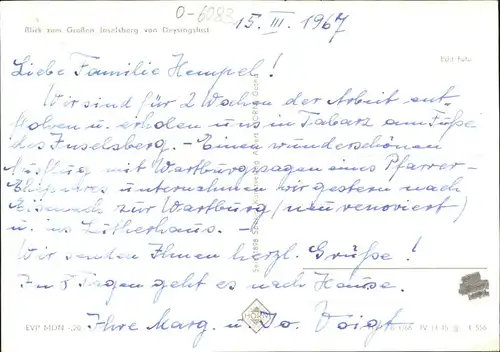 O-6083
15. III. 1967
Blick zum Großen Inselsberg von Deysingslust
Echt Foto
Liebe Familie Hempel!
Wir sind für 2 Wochen der Arbeit ent-
flohen u. erholen uns in Tabarz am Fuße
des Inselsbergs. - Einen wunderschönen
Ausflug mit Wartburgwagen eines Pfarrer-
Ehepaares unternahmen wir gestern nach
Eisenach zur Wartburg (neu renoviert)
u. ins Lutherhaus. -
Wir senden Ihnen herzl. Grüße!
In 8 Tagen geht es nach Hause.
Ihre Marg. u. Jo. Voigt
EVP MDN -,20
HORN
IV 14 45